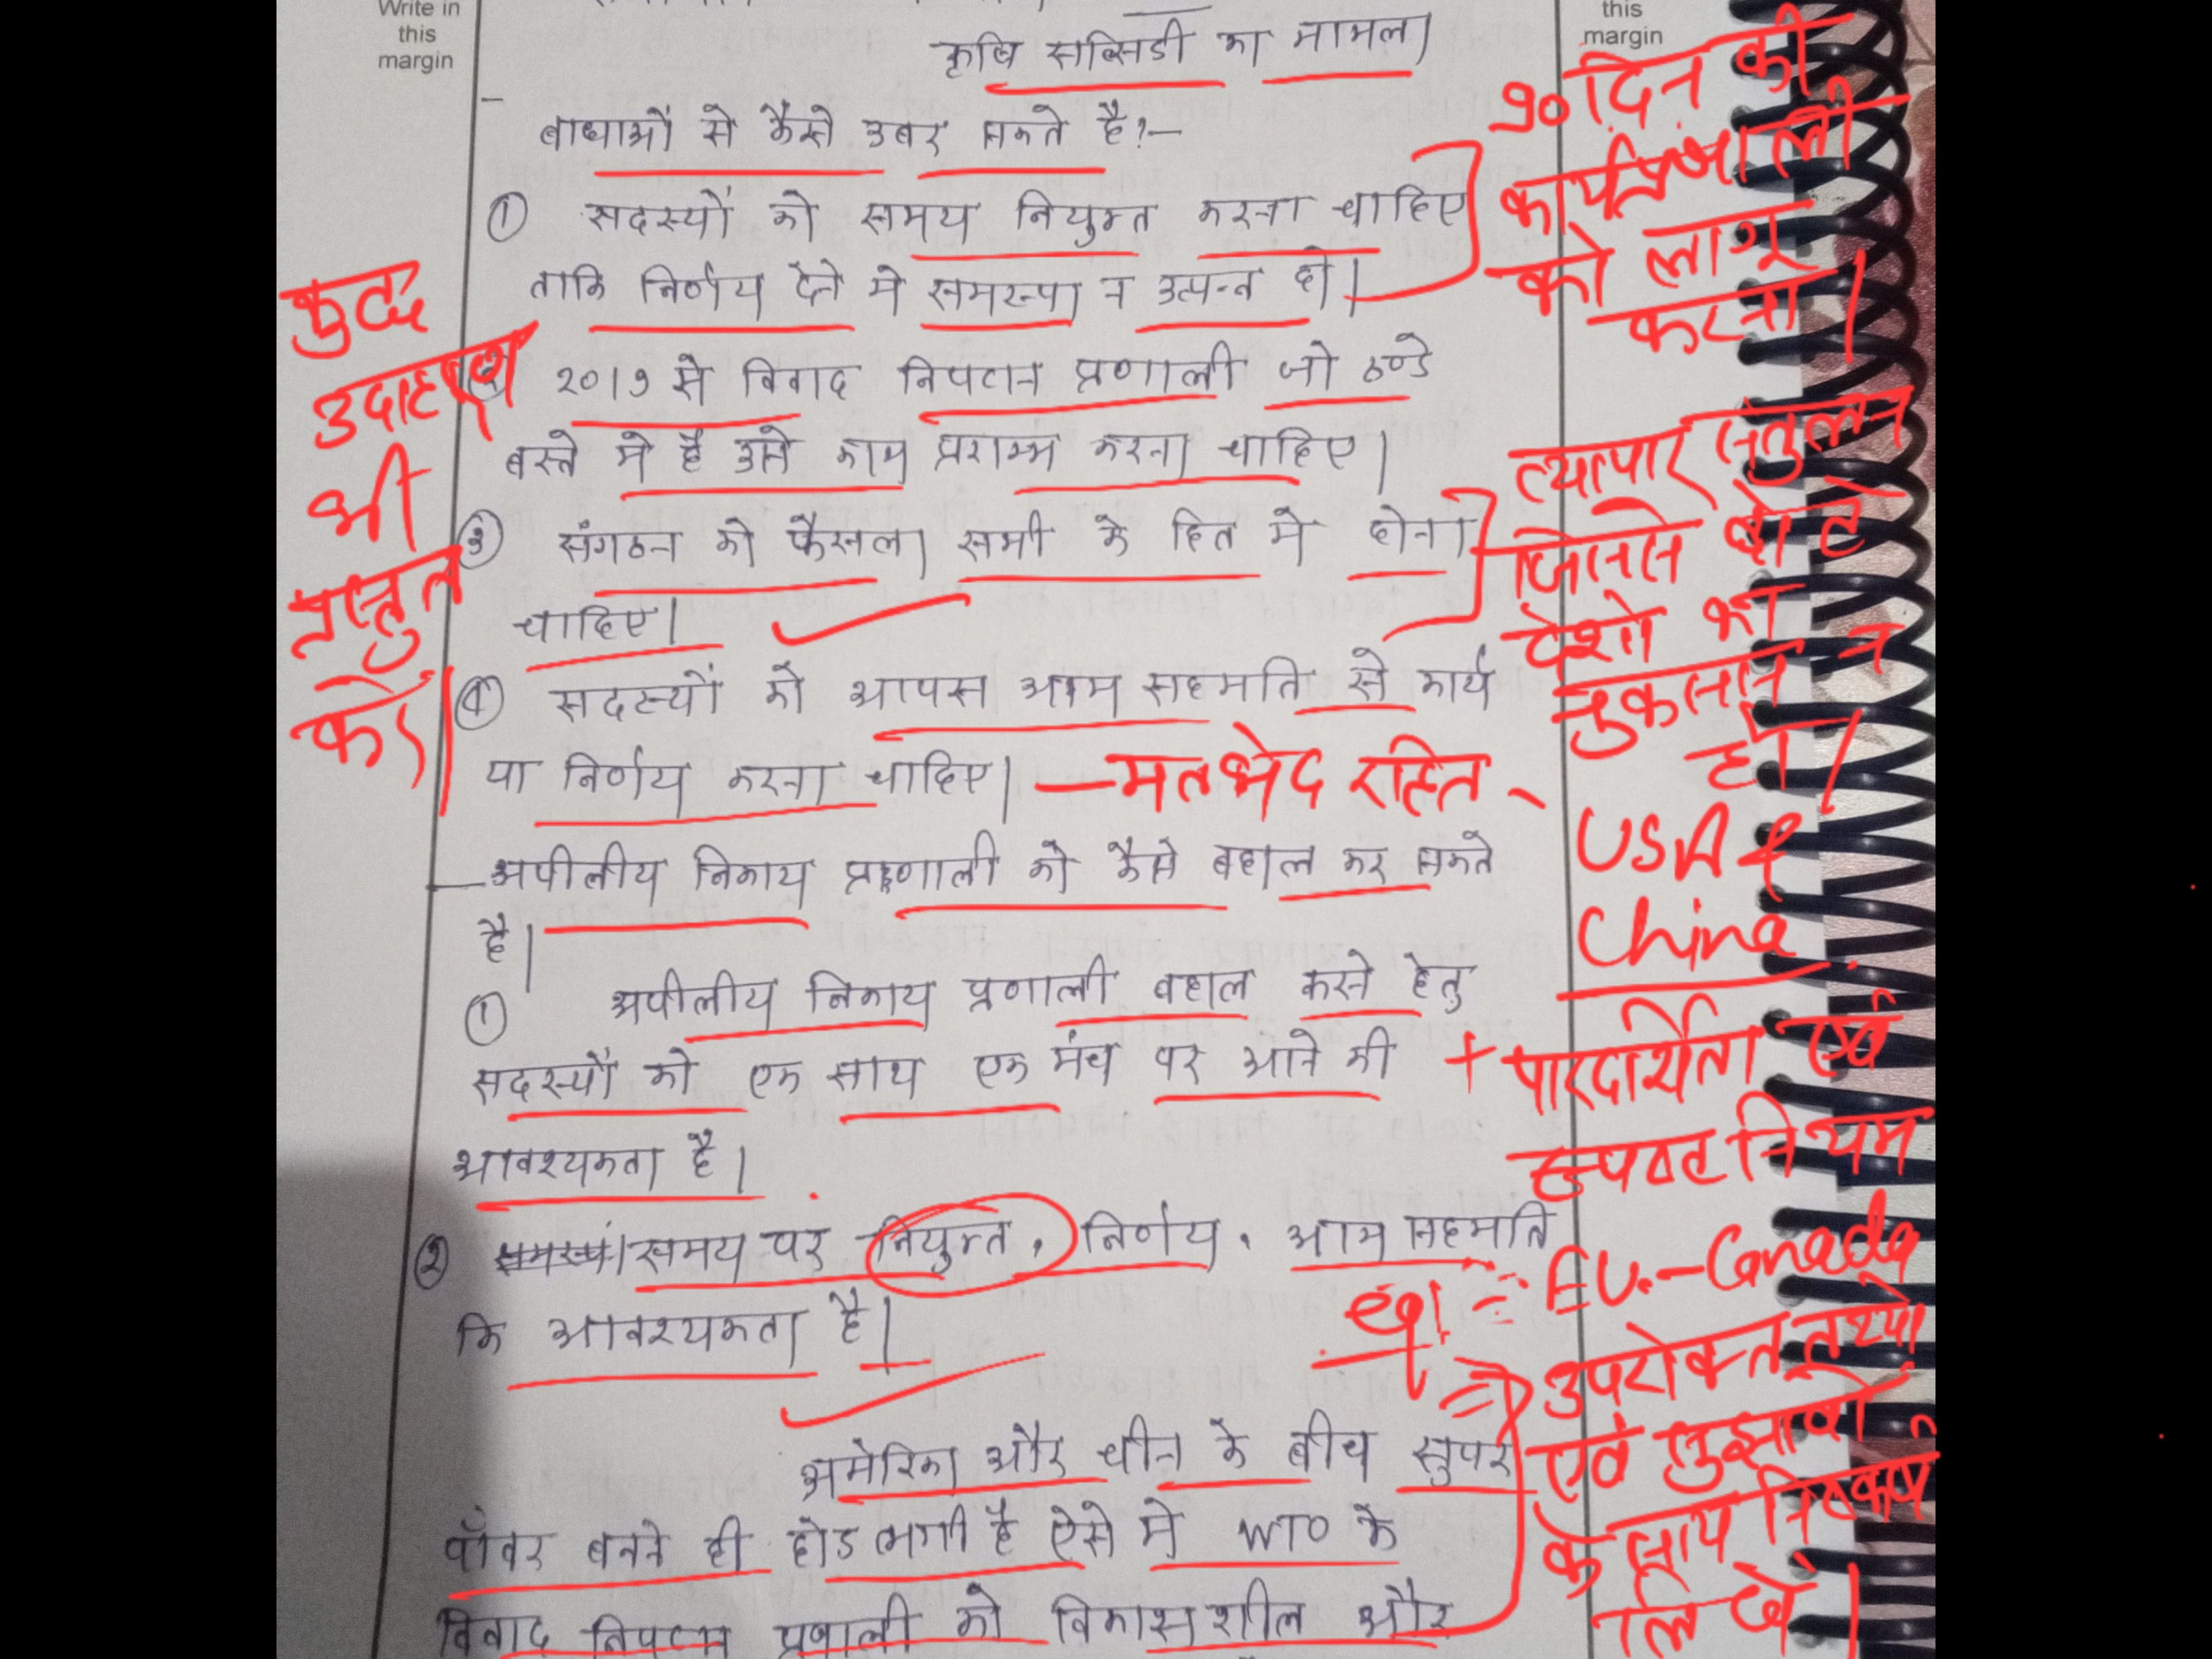 Write in
this
margin
this
margin
कृषि सब्सिडी का मामला
बाधाओं से कैसे उबर सकते है?-
① सदस्यों को समय नियुक्त करना चाहिए
ताकि निर्णय देने मे समस्या न उत्पन्न हो।
२०१9 से विवाद निपटान प्रणाली जो ठण्डे
बस्ते मे है उसे काम प्रारम्भ करना चाहिए।
③ संगठन को फैसला सभी के हित मे होना
चाहिए।
④ सदस्यों को आपस आम सहमति से कार्य
या निर्णय करना चाहिए। — मतभेद रहित
— अपीलीय निकाय प्रणाली को कैसे बहाल कर सकते
है।
① अपीलीय निकाय प्रणाली बहाल करने हेतु
सदस्यों को एक साथ एक मंच पर आने की
आवश्यकता है।
② समय पर नियुक्त, निर्णय, आम सहमति
कि आवश्यकता है।
अमेरिका और चीन के बीच सुपर
पॉवर बनने ही होड लगी है ऐसे मे WTO के
विवाद निपटान प्रणाली को विकासशील और
कुछ
उदाहरण
भी
प्रस्तुत
करें।
90 दिन की
कार्यप्रणाली
को लागू
करना।
व्यापार संतुलन
जिससे छोटे
देशो का
नुकसान न
हो।
USA &
China
+ पारदर्शिता एवं
स्पष्ट नियम
eg! = EU.-Canada
=> उपरोक्त तथ्यो
एवं सुझावो
के साथ निष्कर्ष
लिखे।